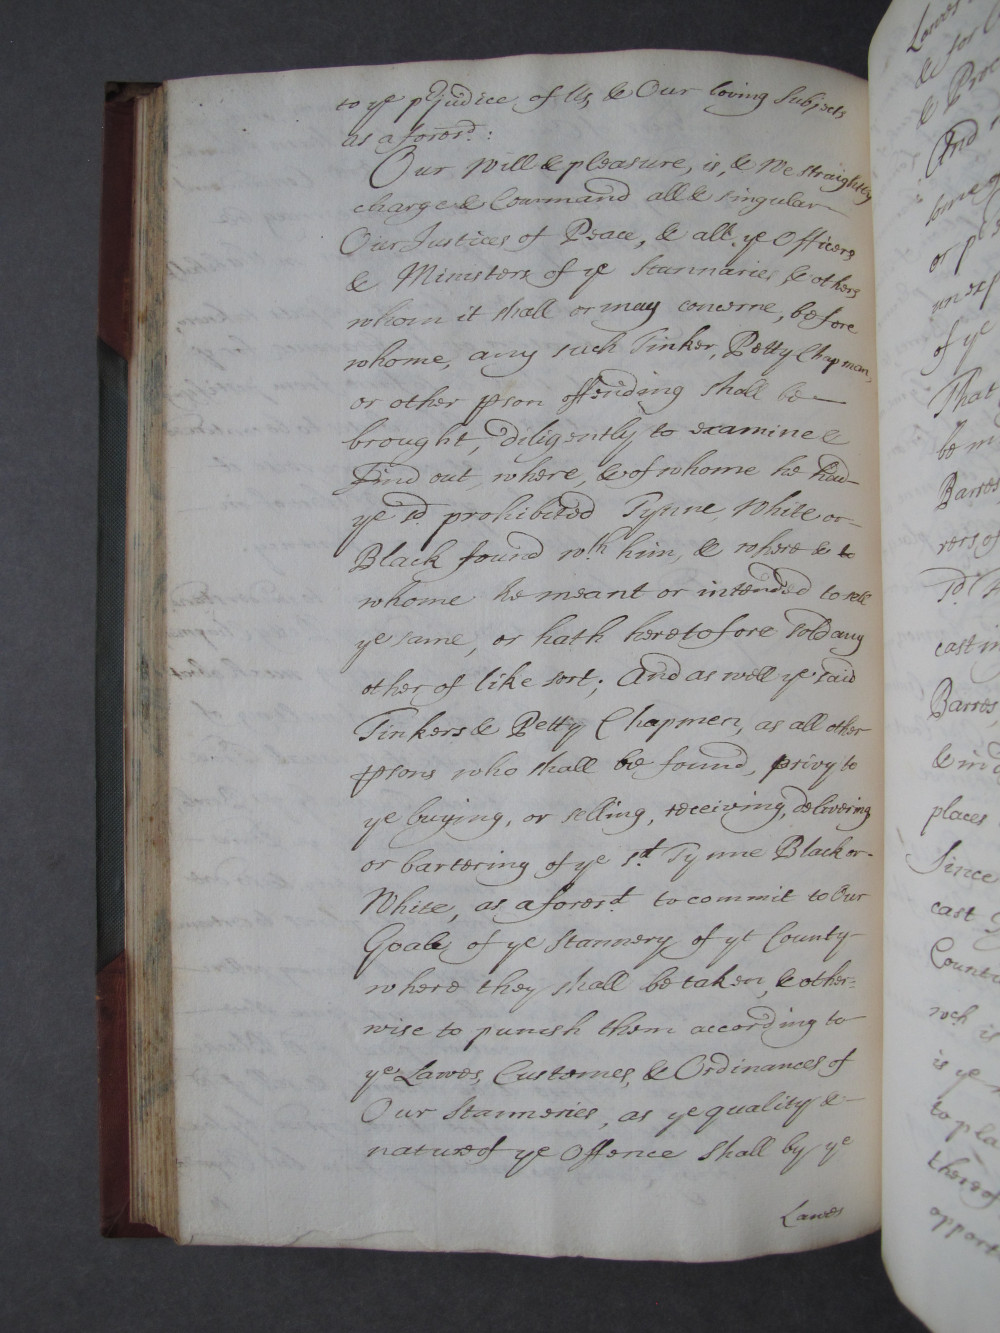 to ye pjudice of Us & Our loving Subjects
as aforesd:
Our Will & pleasure, is, & We straightly
charge & Command all & singular
Our Justices of Peace, & all ye Officers
& Ministers of ye Stannaries, & others
whom it shall or may concerne, before
whome, any such Tinker, Petty Chapman,
or other pson offending shall be
brought, diligently to examine &
Find out, where, & of whome he had
ye sd. prohibited Tynne, White or
Black found wth. him, & where & to
whome he meant or intended to sell
ye same, or hath heretofore sold any
other of like sort; And as well ye said
Tinkers & Petty Chapmen, as all other
psons who shall be found, privy to
ye buying, or selling, receiving, delivering
or bartering of ye sd. Tynne Black or
White, as aforesd. to commit to Our
Goale of ye Stannery of yt County
where they shall be taken, & other=
wise to punish them according to
ye Lawes, Customes, & Ordinances of
Our Stanneries, as ye quality &
nature of ye Offence shall by ye
Lawes
Lawes
& for
& Proc
And
some
or p
unexp
of ye
That
be m
Barres
rers of
sd.
cast in
Barres
& in d
places
Since
cast
Count
wch is
is ye
to pla
thereof
opport